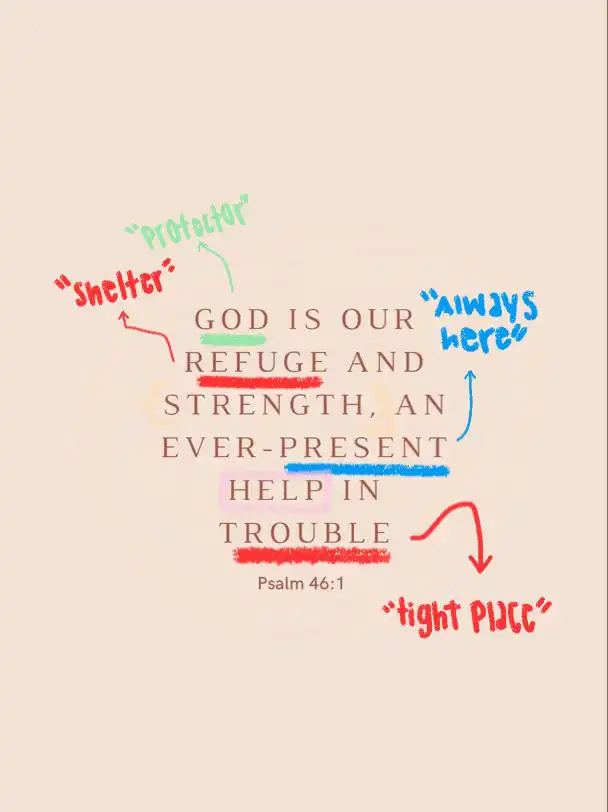 "protector"
"shelter"
"Always
here"
GOD IS OUR
REFUGE AND
STRENGTH, AN
EVER-PRESENT
HELP IN
TROUBLE
Psalm 46:1
"tight place"